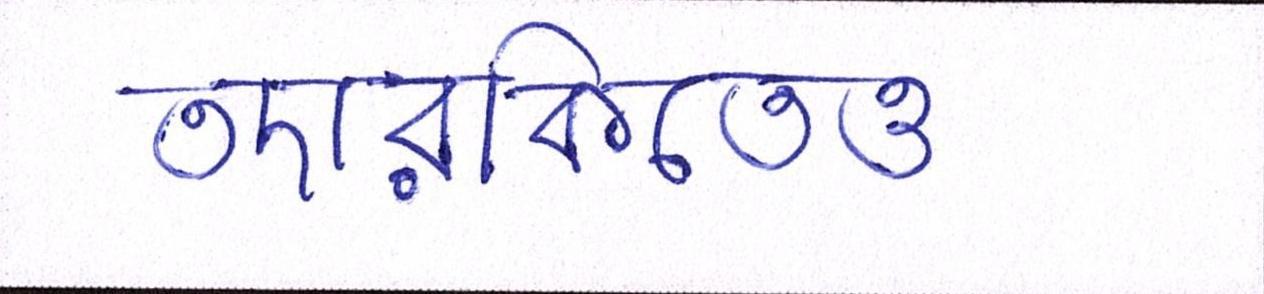 তদারকিতেও